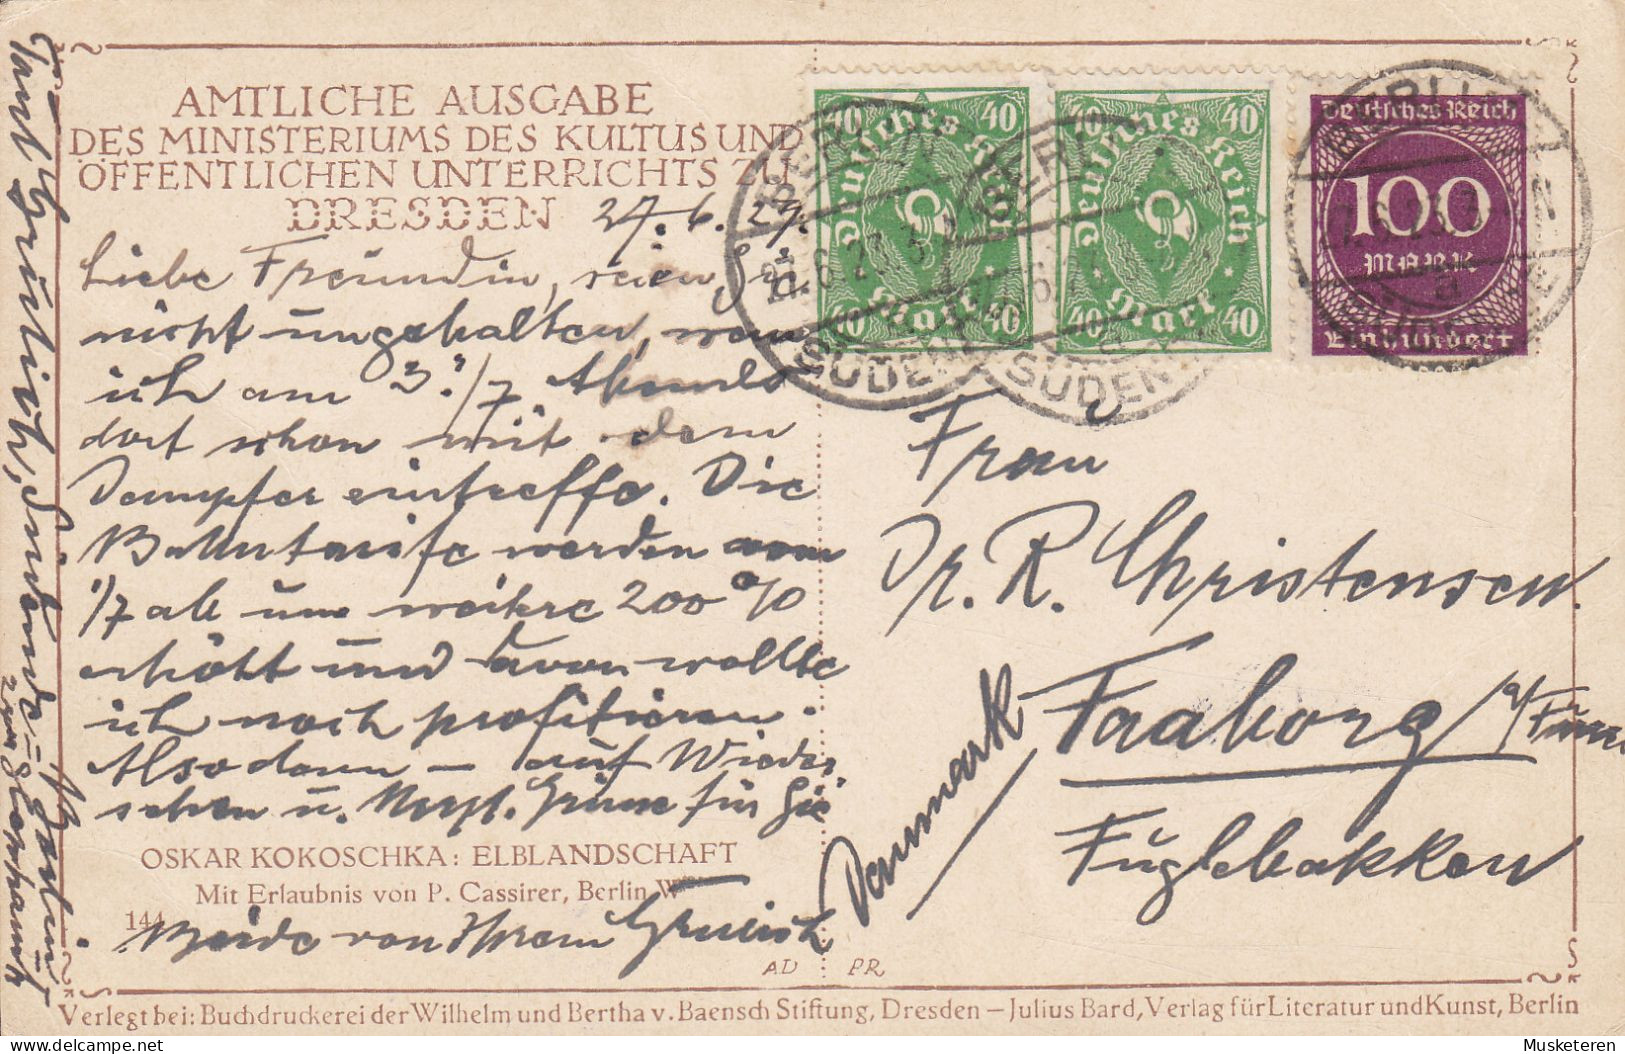 AMTLICHE AUSGABE
DES MINISTERIUMS DES KULTUS UND
ÖFFENTLICHEN UNTERRICHTS ZU
DRESDEN 27.6.23.
Liebe Freundin, seien Sie
nicht ungehalten, wenn
ich am 3./7 Abends
dort schon mit dem
Dampfer eintreffe. Die
Bahntarife werden vom
1/7 ab um weitere 200 %
erhöht und davon wollte
ich noch profitieren.
Also dann – auf Wieder
sehen u. Grüsse für Sie
OSKAR KOKOSCHKA: ELBLANDSCHAFT
Mit Erlaubnis von P. Cassirer, Berlin W
144
Beide von Ihrem
AD PR
40 40
Deutsches Reich
Mark
40 40
40 40
Deutsches Reich
Mark
40 40
Deutsches Reich
100
MARK
Einhundert
BERLIN
SÜDEN
BERLIN
SÜDEN
BERLIN
Frau
Dr. R. Christensen
Faaborg a/Fünen
Fuglebakken
Danmark
Verlegt bei: Buchdruckerei der Wilhelm und Bertha v. Baensch Stiftung, Dresden – Julius Bard, Verlag für Literatur und Kunst, Berlin
Musketeren
delcampe.net